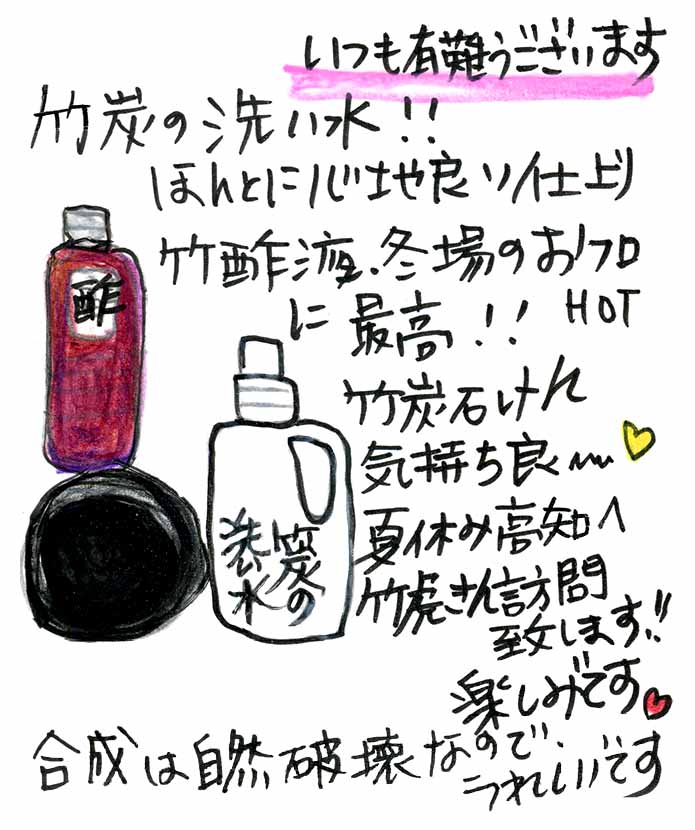 いつも有難うございます
竹炭の洗い水!!
ほんとに心地良い仕上り
竹酢液、冬場のおフロ
に最高!! HOT
竹炭石けん
気持ち良く〰
夏休み高知へ
竹虎さん訪問
致します!!
楽しみです
合成は自然破壊なので、
うれしいです
酢
炭の
洗い水